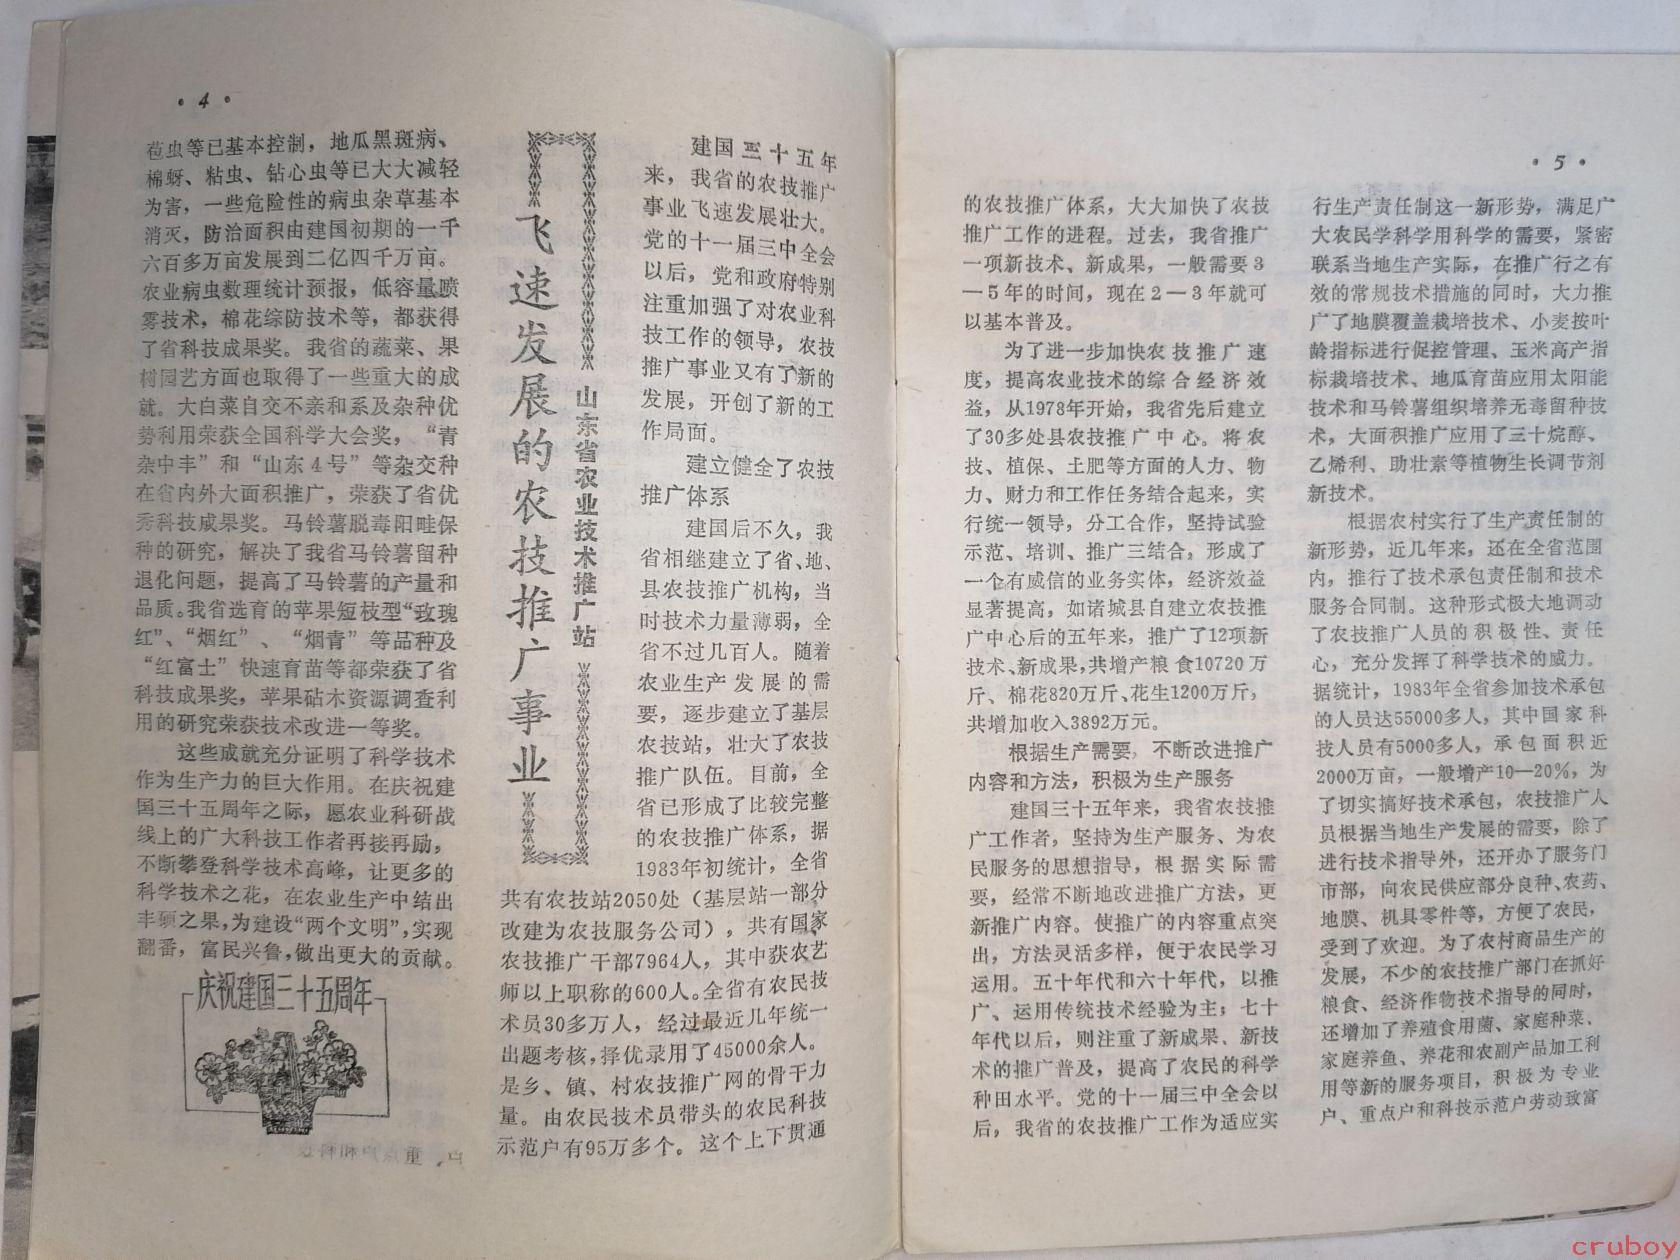 ·4·
苞虫等已基本控制，地瓜黑斑病、
棉蚜、粘虫、钻心虫等已大大减轻
为害，一些危险性的病虫杂草基本
消灭，防治面积由建国初期的一千
六百多万亩发展到二亿四千万亩。
农业病虫数理统计预报，低容量喷
雾技术，棉花综防技术等，都获得
了省科技成果奖。我省的蔬菜、果
树园艺方面也取得了一些重大的成
就。大白菜自交不亲和系及杂种优
势利用荣获全国科学大会奖，“青
杂中丰”和“山东4号”等杂交种
在省内外大面积推广，荣获了省优
秀科技成果奖。马铃薯脱毒阳畦保
种的研究，解决了我省马铃薯留种
退化问题，提高了马铃薯的产量和
品质。我省选育的苹果短枝型“玫瑰
红”、“烟红”、“烟青”等品种及
“红富士”快速育苗等都荣获了省
科技成果奖，苹果砧木资源调查利
用的研究荣获技术改进一等奖。
这些成就充分证明了科学技术
作为生产力的巨大作用。在庆祝建
国三十五周年之际，愿农业科研战
线上的广大科技工作者再接再励，
不断攀登科学技术高峰，让更多的
科学技术之花，在农业生产中结出
丰硕之果，为建设“两个文明”，实现
翻番，富民兴鲁，做出更大的贡献。
庆祝建国三十五周年
飞速发展的农技推广事业
山东省农业技术推广站
建国三十五年
来，我省的农技推广
事业飞速发展壮大。
党的十一届三中全会
以后，党和政府特别
注重加强了对农业科
技工作的领导，农技
推广事业又有了新的
发展，开创了新的工
作局面。
建立健全了农技
推广体系
建国后不久，我
省相继建立了省、地、
县农技推广机构，当
时技术力量薄弱，全
省不过几百人。随着
农业生产发展的需
要，逐步建立了基层
农技站，壮大了农技
推广队伍。目前，全
省已形成了比较完整
的农技推广体系，据
1983年初统计，全省
共有农技站2050处（基层站一部分
改建为农技服务公司），共有国家
农技推广干部7964人，其中获农艺
师以上职称的600人。全省有农民技
术员30多万人，经过最近几年统一
出题考核，择优录用了45000余人。
是乡、镇、村农技推广网的骨干力
量。由农民技术员带头的农民科技
示范户有95万多个。这个上下贯通
·5·
的农技推广体系，大大加快了农技
推广工作的进程。过去，我省推广
一项新技术、新成果，一般需要3
—5年的时间，现在2—3年就可
以基本普及。
为了进一步加快农技推广速
度，提高农业技术的综合经济效
益，从1978年开始，我省先后建立
了30多处县农技推广中心。将农
技、植保、土肥等方面的人力、物
力、财力和工作任务结合起来，实
行统一领导，分工合作，坚持试验
示范、培训、推广三结合，形成了
一个有威信的业务实体，经济效益
显著提高，如诸城县自建立农技推
广中心后的五年来，推广了12项新
技术、新成果，共增产粮食10720万
斤、棉花820万斤、花生1200万斤，
共增加收入3892万元。
根据生产需要，不断改进推广
内容和方法，积极为生产服务
建国三十五年来，我省农技推
广工作者，坚持为生产服务、为农
民服务的思想指导，根据实际需
要，经常不断地改进推广方法，更
新推广内容。使推广的内容重点突
出，方法灵活多样，便于农民学习
运用。五十年代和六十年代，以推
广、运用传统技术经验为主；七十
年代以后，则注重了新成果、新技
术的推广普及，提高了农民的科学
种田水平。党的十一届三中全会以
后，我省的农技推广工作为适应实
行生产责任制这一新形势，满足广
大农民学科学用科学的需要，紧密
联系当地生产实际，在推广行之有
效的常规技术措施的同时，大力推
广了地膜覆盖栽培技术、小麦按叶
龄指标进行促控管理、玉米高产指
标栽培技术、地瓜育苗应用太阳能
技术和马铃薯组织培养无毒留种技
术，大面积推广应用了三十烷醇、
乙烯利、助壮素等植物生长调节剂
新技术。
根据农村实行了生产责任制的
新形势，近几年来，还在全省范围
内，推行了技术承包责任制和技术
服务合同制。这种形式极大地调动
了农技推广人员的积极性、责任
心，充分发挥了科学技术的威力。
据统计，1983年全省参加技术承包
的人员达55000多人，其中国家科
技人员有5000多人，承包面积近
2000万亩，一般增产10—20%，为
了切实搞好技术承包，农技推广人
员根据当地生产发展的需要，除了
进行技术指导外，还开办了服务门
市部，向农民供应部分良种、农药、
地膜、机具零件等，方便了农民，
受到了欢迎。为了农村商品生产的
发展，不少的农技推广部门在抓好
粮食、经济作物技术指导的同时，
还增加了养殖食用菌、家庭种菜、
家庭养鱼、养花和农副产品加工利
用等新的服务项目，积极为专业
户、重点户和科技示范户劳动致富
cruboy